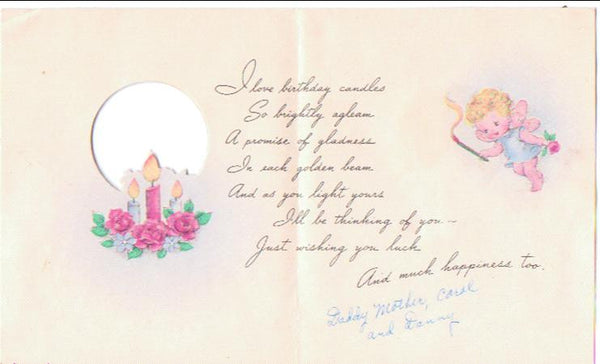 I love birthday candles
So brightly agleam
A promise of gladness
In each golden beam
And as you light yours
I'll be thinking of you—
Just wishing you luck
And much happiness too.
Daddy Mother, Carol
and Danny